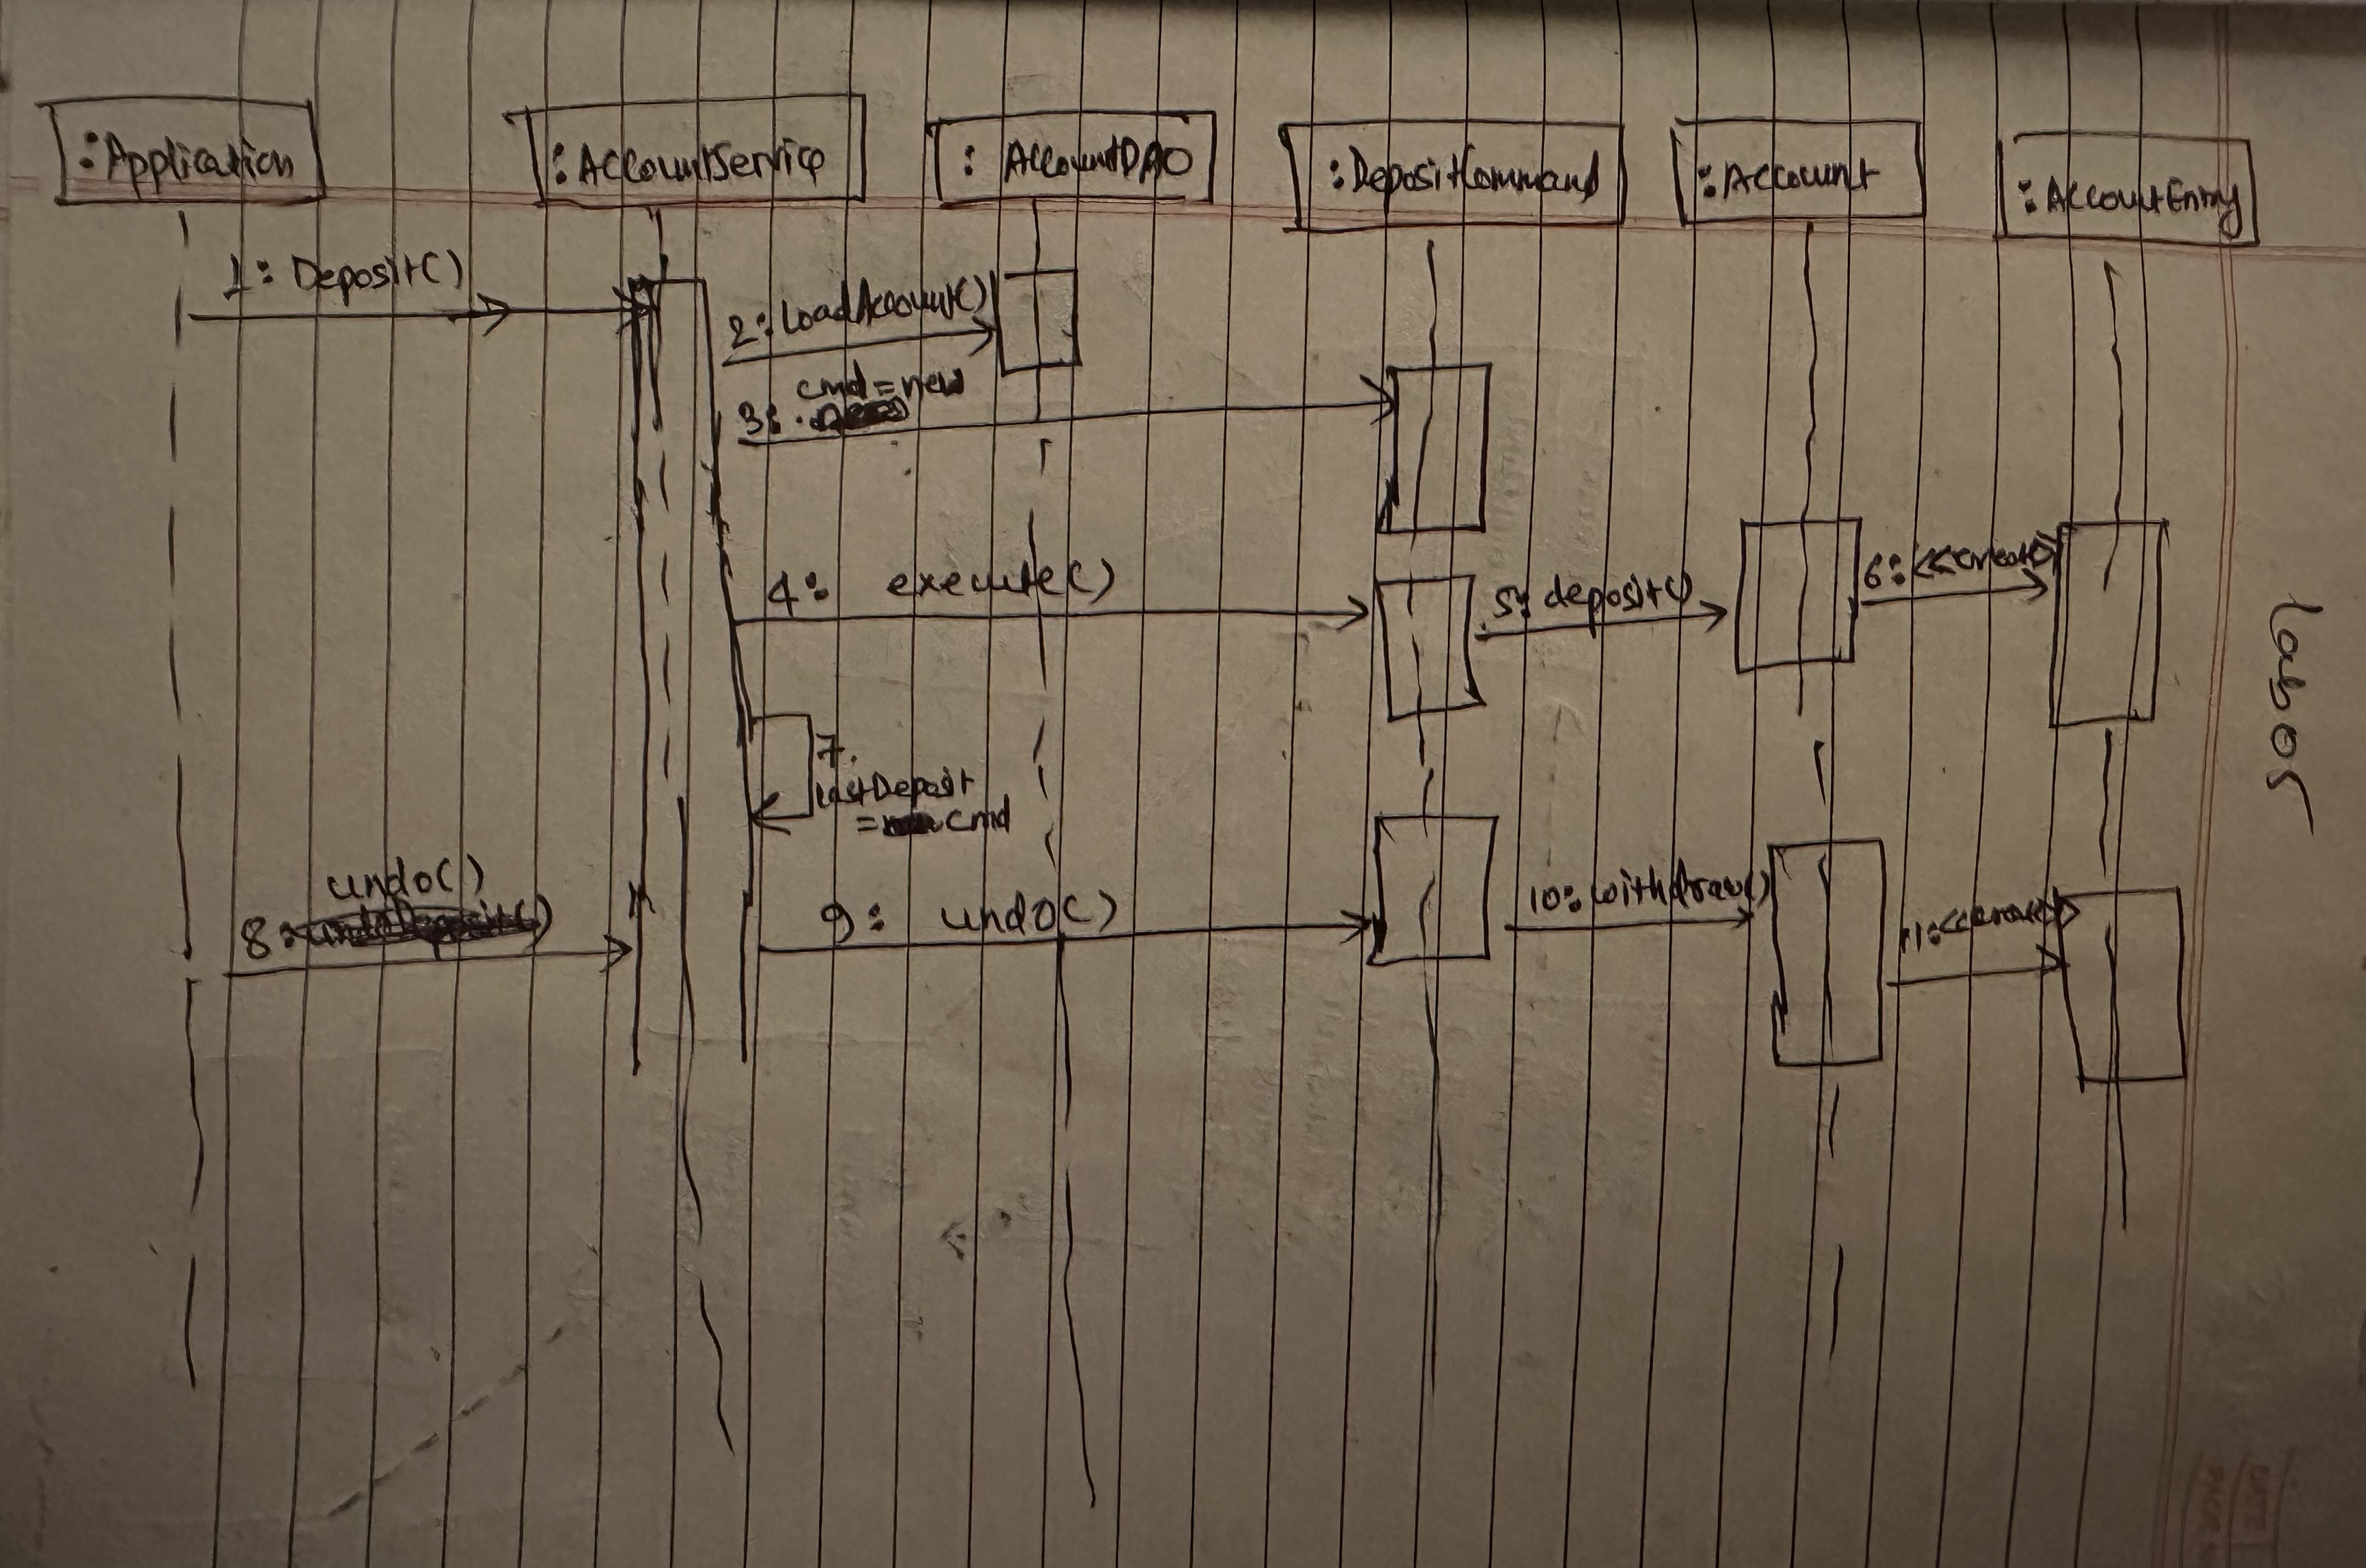 :Application
:AccountService
: AccountDAO
:DepositCommand
:Account
:AccountEntry
1: Deposit()
2: LoadAccount()
cmd=new
3:
4: execute()
5: deposit()
6: <<create>>
7.
lastDeposit
= cmd
undo()
8:
9: undo()
10: withdraw()
11: <<create>>
lab05
DATE
PAGE